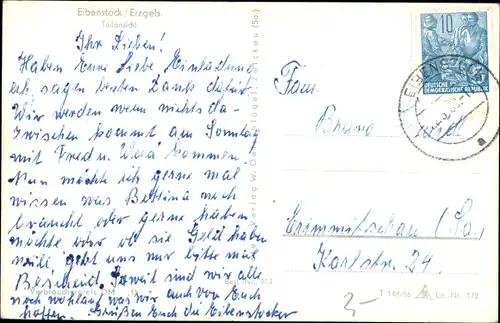 Eibenstock / Erzgeb.
Teilansicht
Ihr Lieben!
Haben Eure liebe Einladung
erh. sagen besten Dank dafür.
Wir werden wenn nichts da-
zwischen kommt am Sonntag
mit Fred u. kommen.
Nun möchte ich gerne mal
wissen was Bettina noch
braucht oder gerne haben
möchte oder ob sie Geld haben
will gebt uns nur bitte mal
Bescheid. Soweit sind wir alle
noch wohlauf was wir von Euch
hoffen. Grüßen Euch die Eibenstocker
Verbraucherpreis DM
Best.-Nr. 913
10
DEUTSCHE
DEMOKRATISCHE REPUBLIK
EIBENSTOCK
a
Fam.
Bruno
Crimmitschau (Sa.)
Karlstr. 24.
T 148/56 Liz. Nr. 172
2-